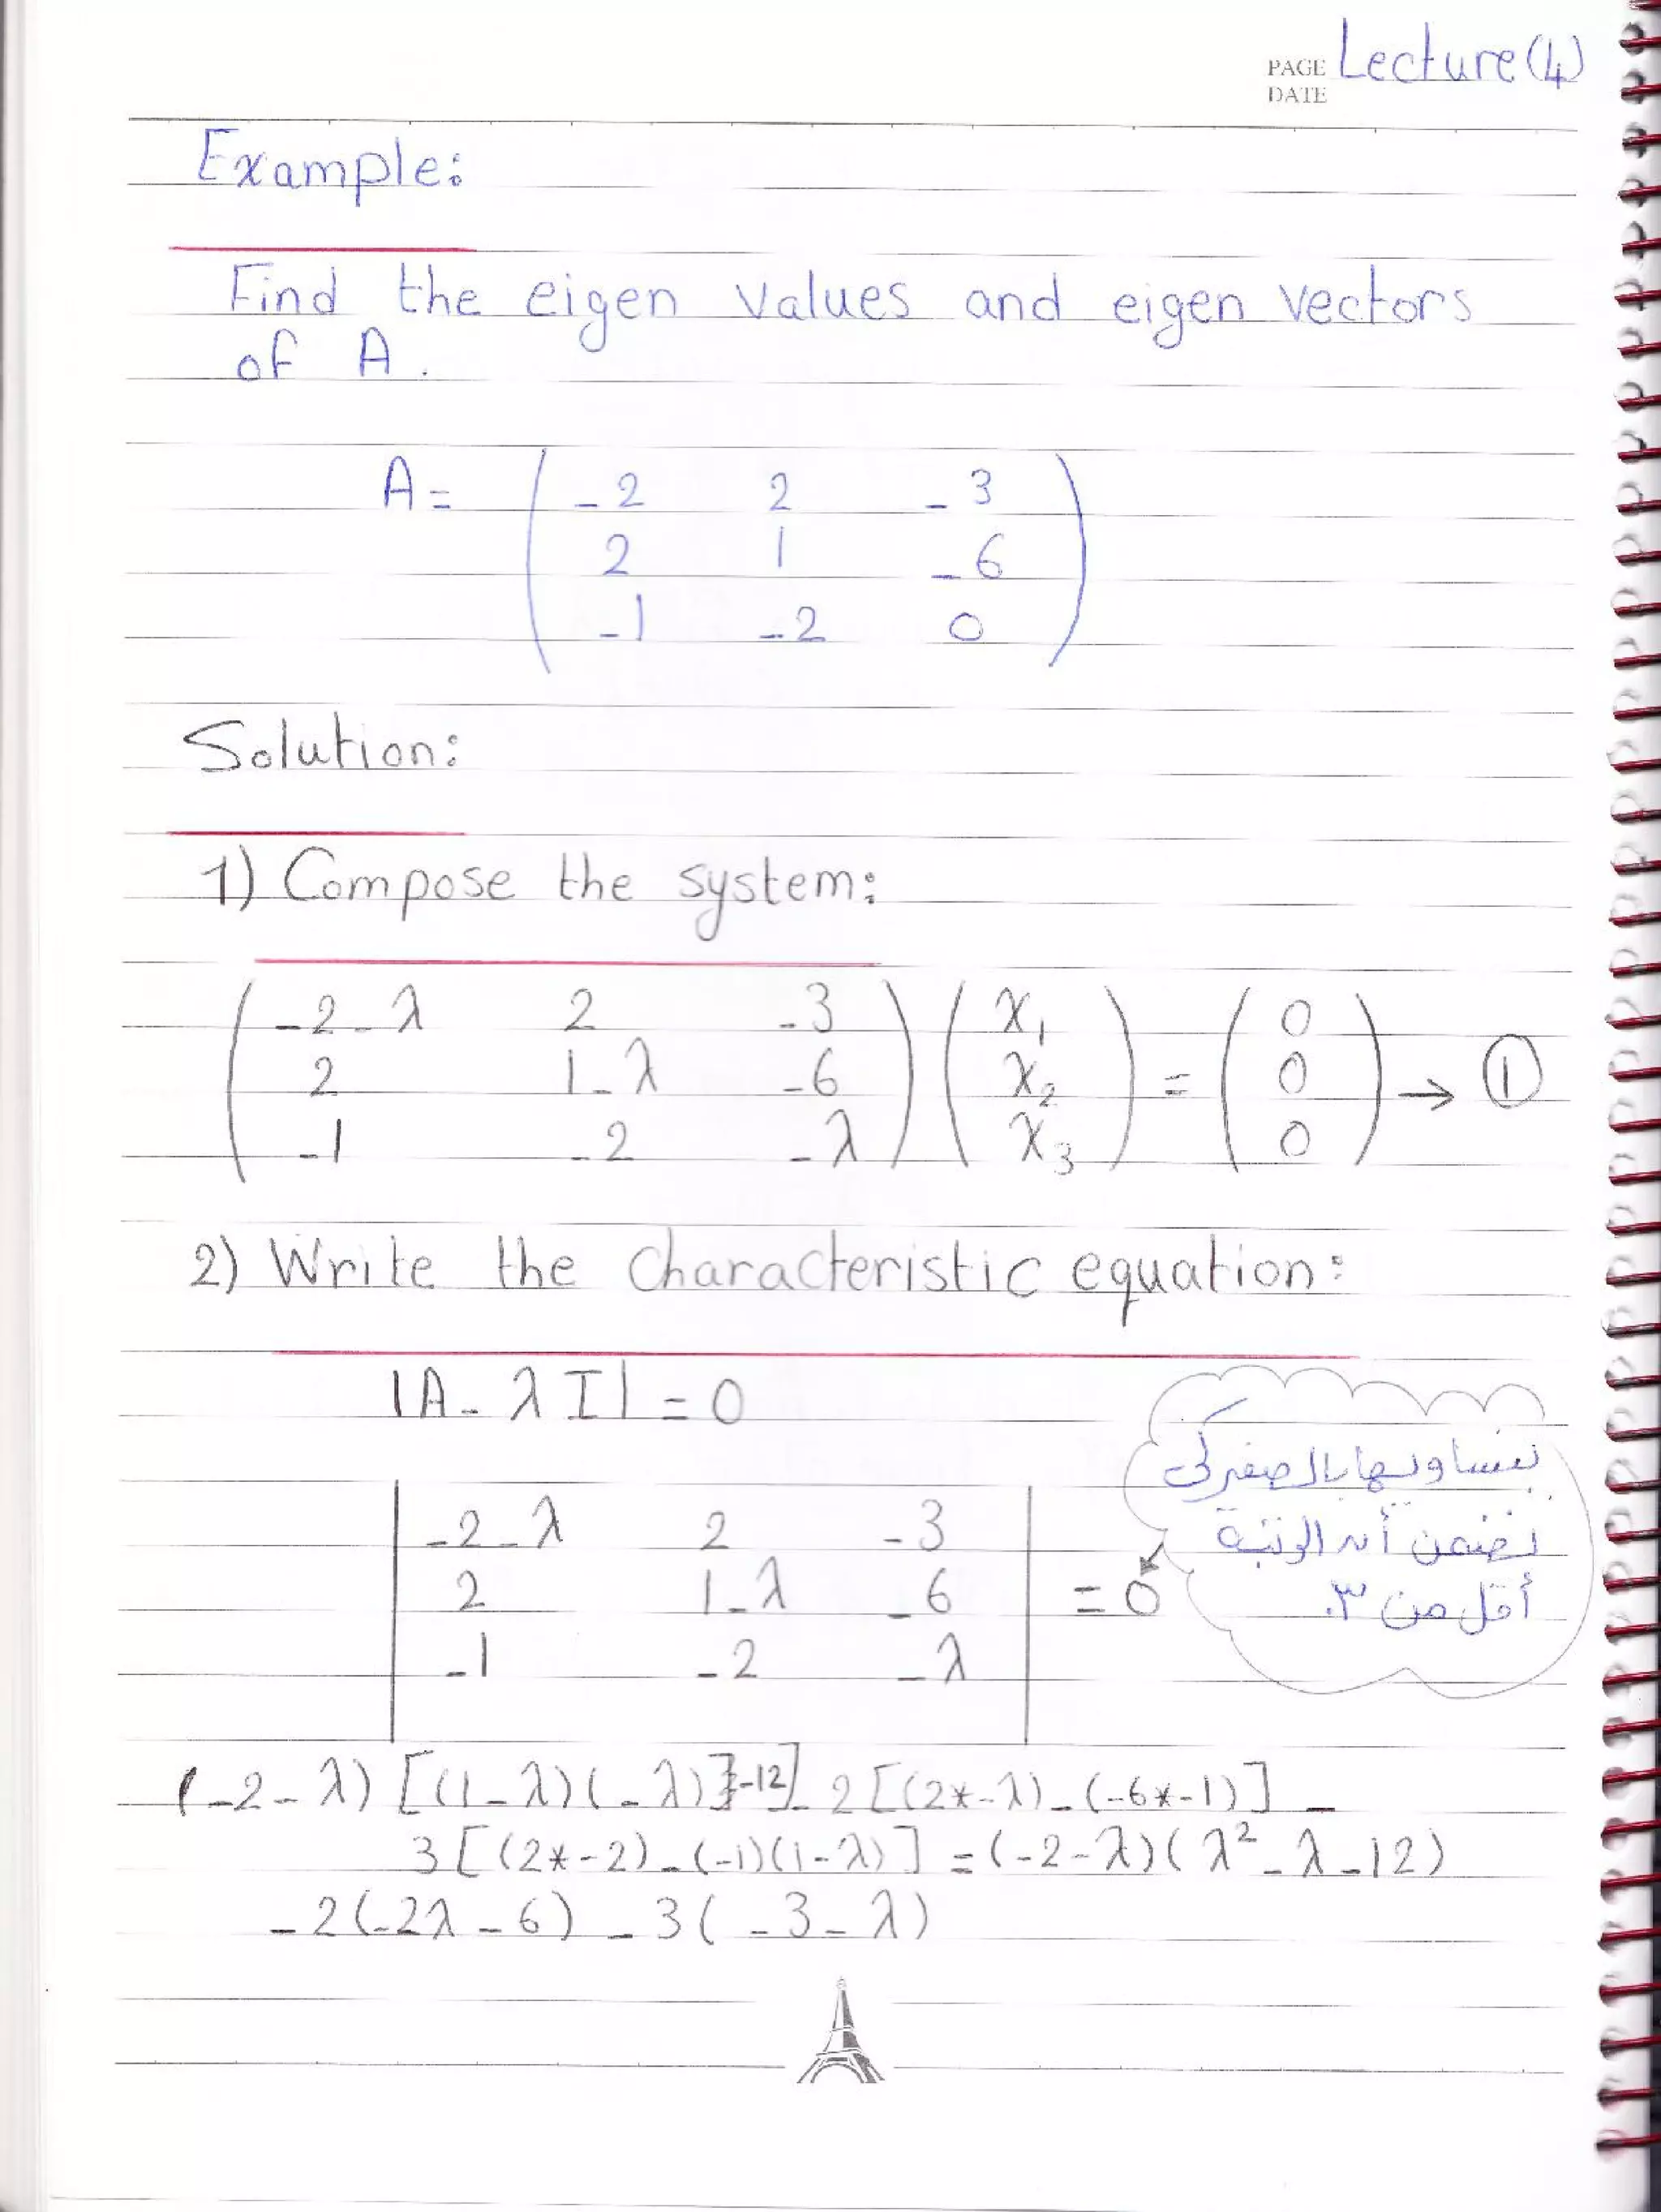 PAGE Lecture (4)
DATE
Example:
Find the eigen values and eigen vectors
of A.
A = ( -2 2 -3
2 1 -6
-1 -2 0 )
Solution:
1) Compose the system:
( -2-λ 2 -3 ) ( x₁ ) = ( 0 )
( 2 1-λ -6 ) ( x₂ ) = ( 0 ) → ①
( -1 -2 -λ ) ( x₃ ) = ( 0 )
2) Write the characteristic equation:
|A - λI| = 0
| -2-λ 2 -3 |
| 2 1-λ -6 | = 0
| -1 -2 -λ |
نساويها بالصفر لكي
نضمن أن الرتبة
أقل من ٣.
(-2-λ) [(1-λ)(-λ)-12] - 2 [(2*-λ)-(-6*-1)] -
3 [(2*-2)-(-1)(1-λ)] = (-2-λ)(λ²-λ-12)
-2(-2λ-6) - 3(-3-λ)